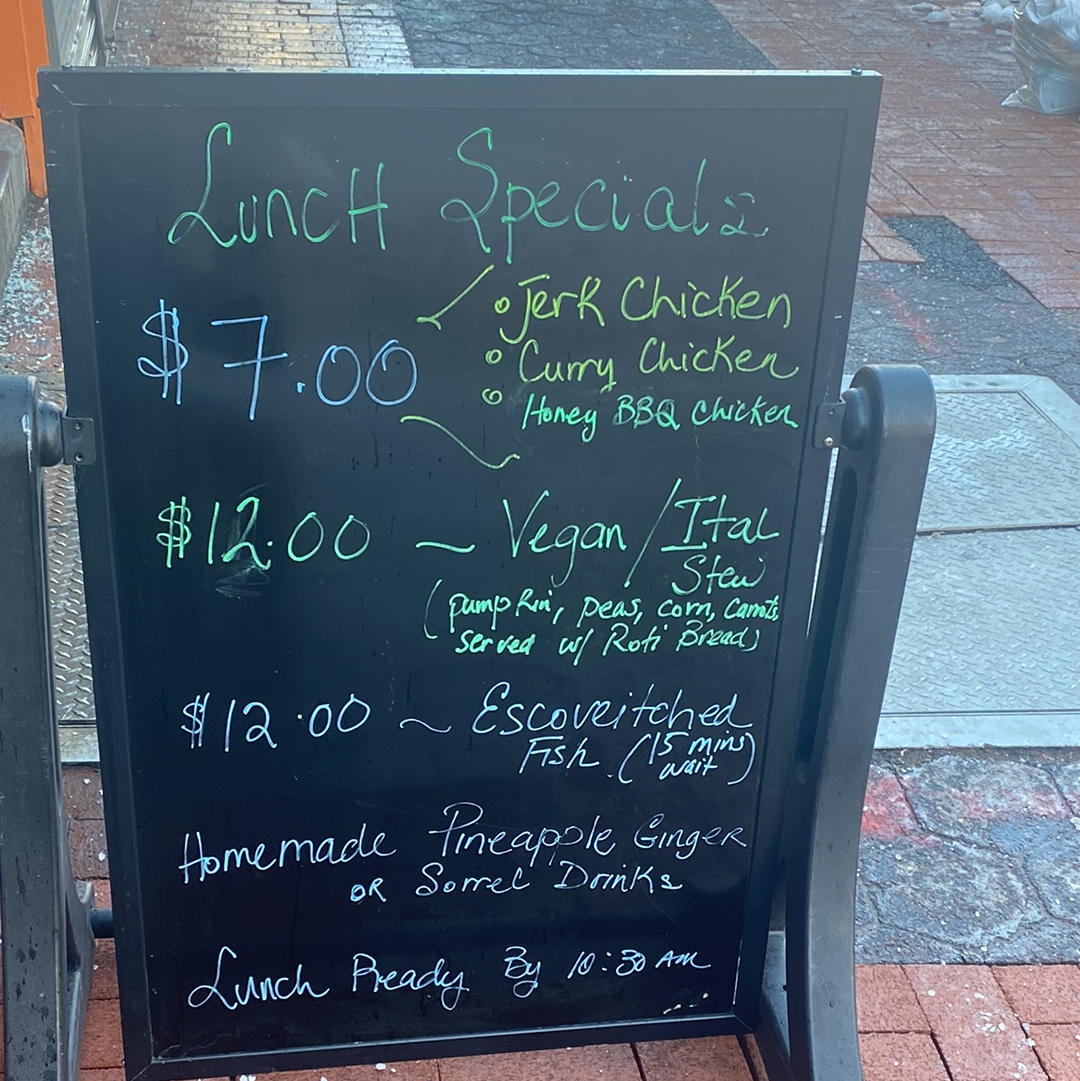 Lunch Specials
$7.00
Jerk Chicken
Curry Chicken
Honey BBQ Chicken
$12.00 ~ Vegan / Ital
Stew
(pumpkin, peas, corn, carrots,
served w/ Roti Bread)
$12.00 ~ Escoveitched
Fish (15 mins
wait)
Homemade Pineapple Ginger
OR Sorrel Drinks
Lunch Ready By 10:30 AM